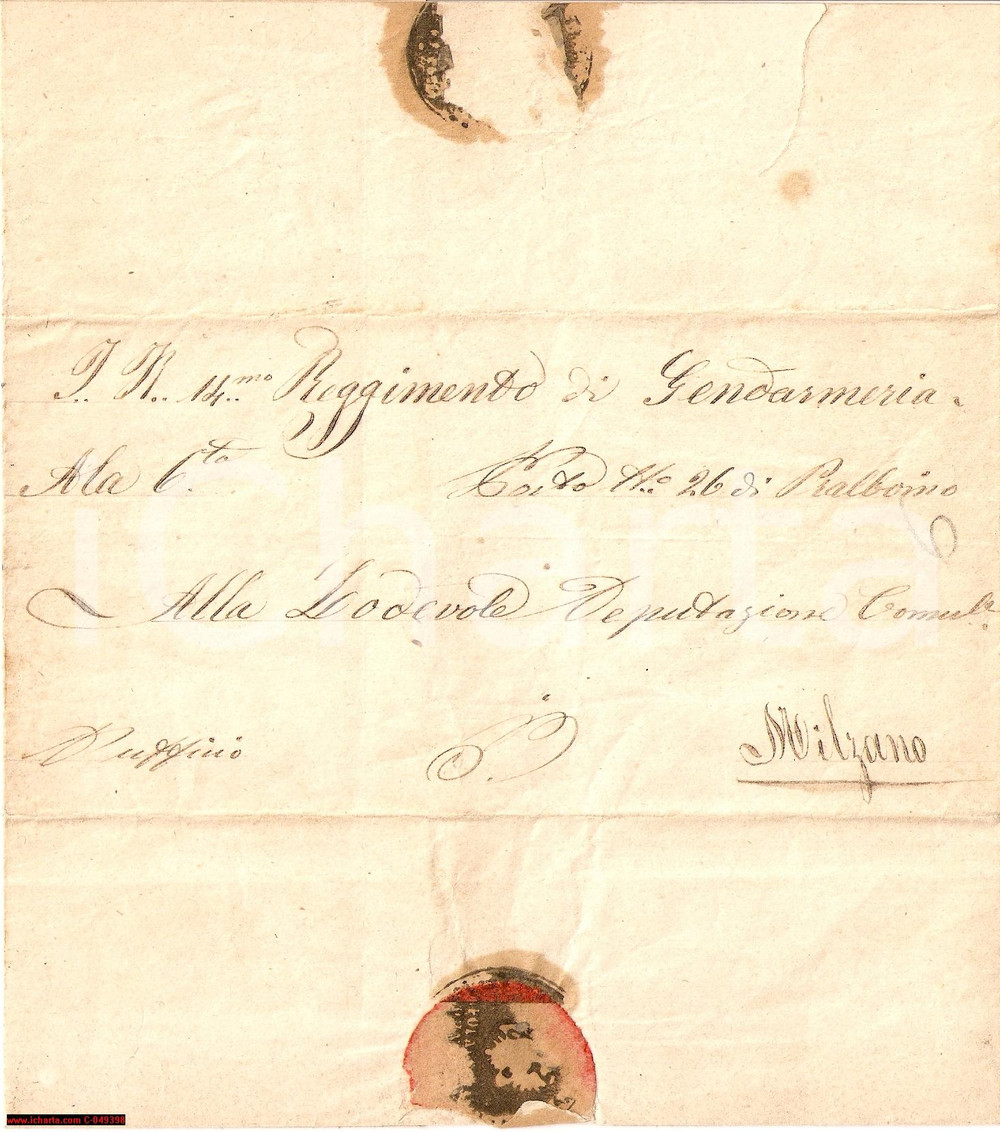 I. R. 14.mo Reggimento di Gendarmeria.
Ala 6.ta Posto N.o 26 di Pralboino
Alla Lodevole Deputazione Comul.e
D'uffizio
Milzano
icharta
www.icharta.com C-049398